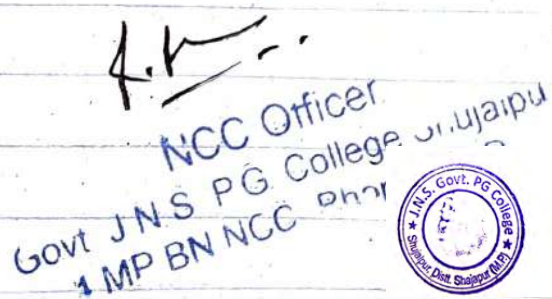 NCC Officer
Govt J N S PG College
1 MP BN NCC
J.N.S. Govt. PG College
Shujalpur, Distt. Shajapur (M.P.)